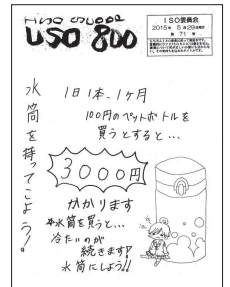 USO 800
ISO委員会
2015年 5月29日発行
第 71 号
水筒を持ってこよう!
1日1本、1ヶ月
100円のペットボトルを
買うとすると…
3000円
かかります
水筒を買うと…
冷たいのが
続きます!
水筒にしよう!!